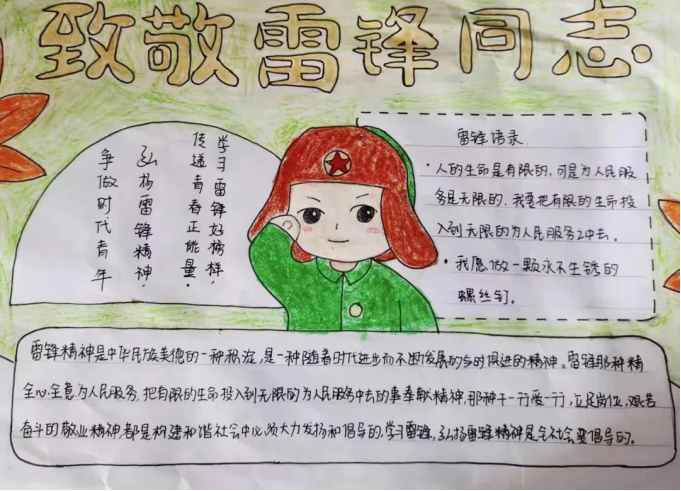 致敬雷锋同志
学习雷锋好榜样，
传递青春正能量。
弘扬雷锋精神，
争做时代青年
雷锋语录
·人的生命是有限的，可是为人民服
务是无限的，我要把有限的生命投
入到无限的为人民服务之中去。
·我愿做一颗永不生锈的
螺丝钉。
雷锋精神是中华民族美德的一种积淀，是一种随着时代进步而不断发展的与时俱进的精神。雷锋那种精
全心全意为人民服务，把有限的生命投入到无限的为人民服务中去的奉献精神，那种干一行爱一行，立足岗位，艰苦
奋斗的敬业精神，都是构建和谐社会中必须大力发扬和倡导的，学习雷锋，弘扬雷锋精神是全社会要倡导的。